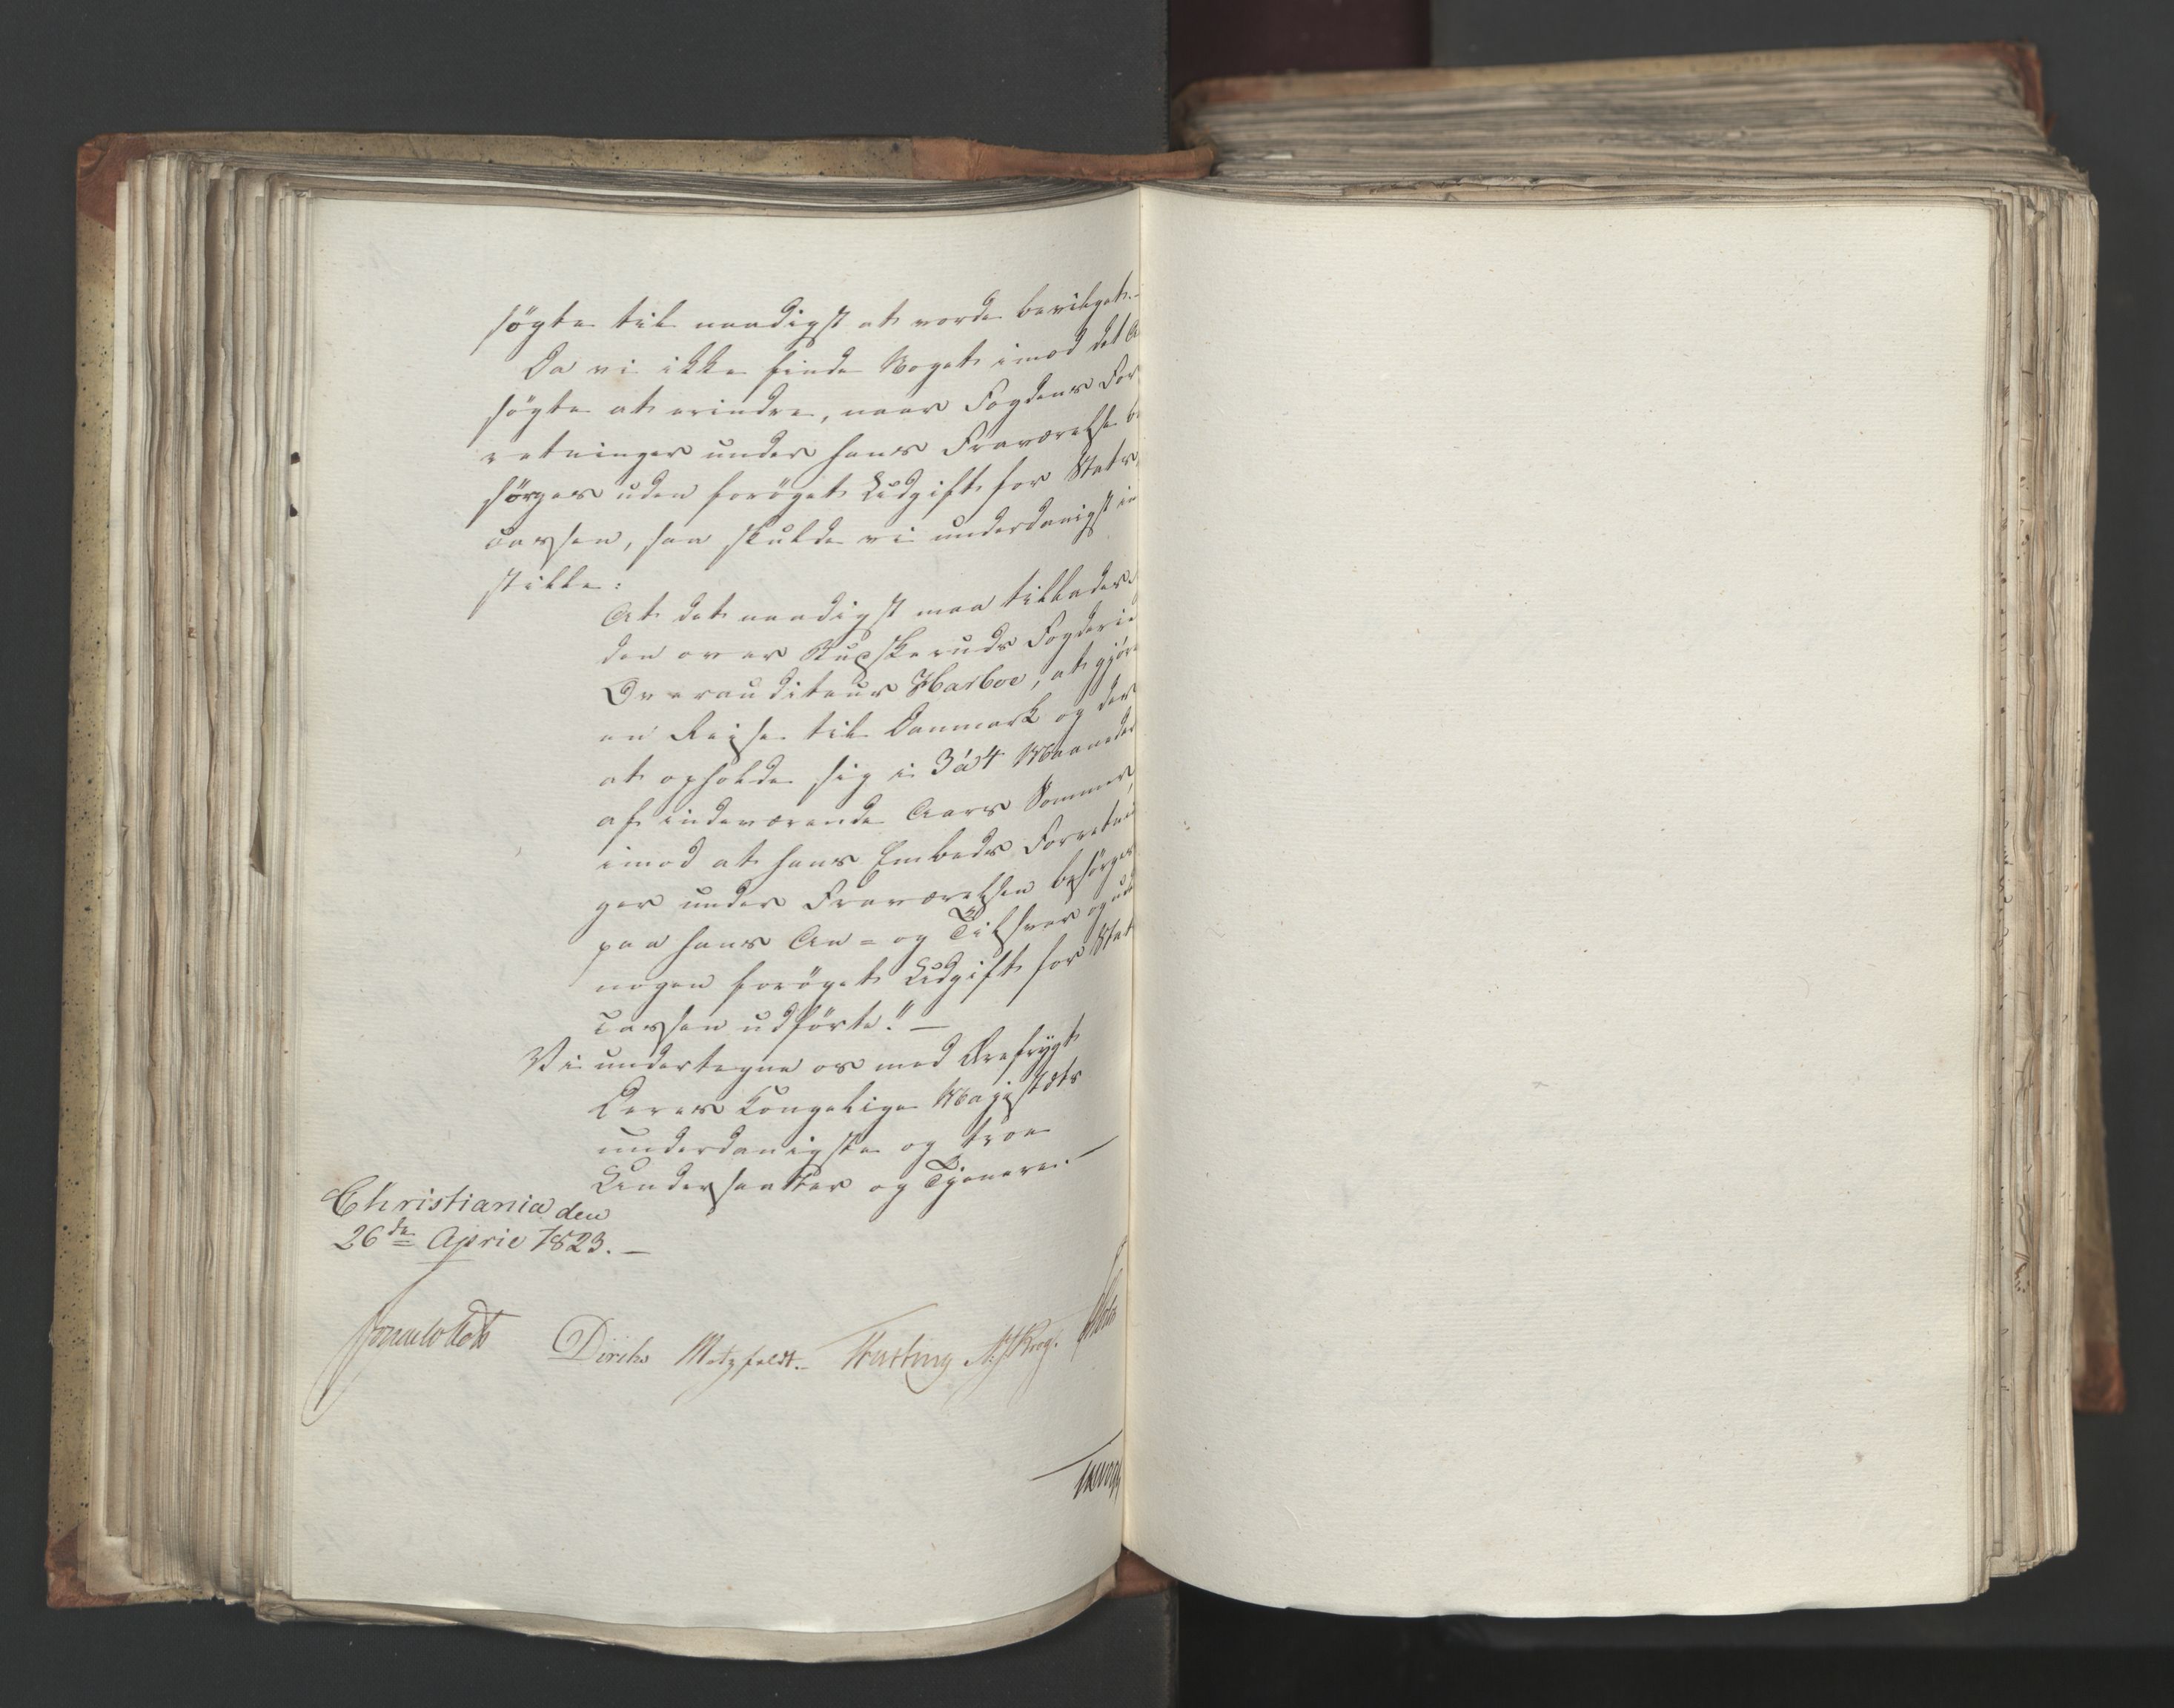 søgte til naadigst at vorde bevilget.-
Da vi ikke finde Noget imod det A
søgte at erindre, naar Fogdens For
retninger under hans Fraværelse be
sørges uden forøget Udgift for Stats
cassen, saa skulde vi underdanigst in
stille:
At det naadigst maa tillades
den over Buskeruds Fogderie
Overauditeur Harboe, at gjøre
en Reise til Danmark og der
at opholde sig i 3 à 4 Maaneder
af indeværende Aars Sommer,
imod at hans Embeds Forretnin
ger under Fraværelsen besørges
paa hans An= og Tilsvar og uden
nogen forøget Udgift for Stats
cassen udførte." —
Vi undertegne os med Ærefrygt
Deres Kongelige Majestæts
underdanigste og troe
Undersaatter og Tjenere.
Christiania den
26de April 1823. —
Diriks Motzfeldt. M. Krog.